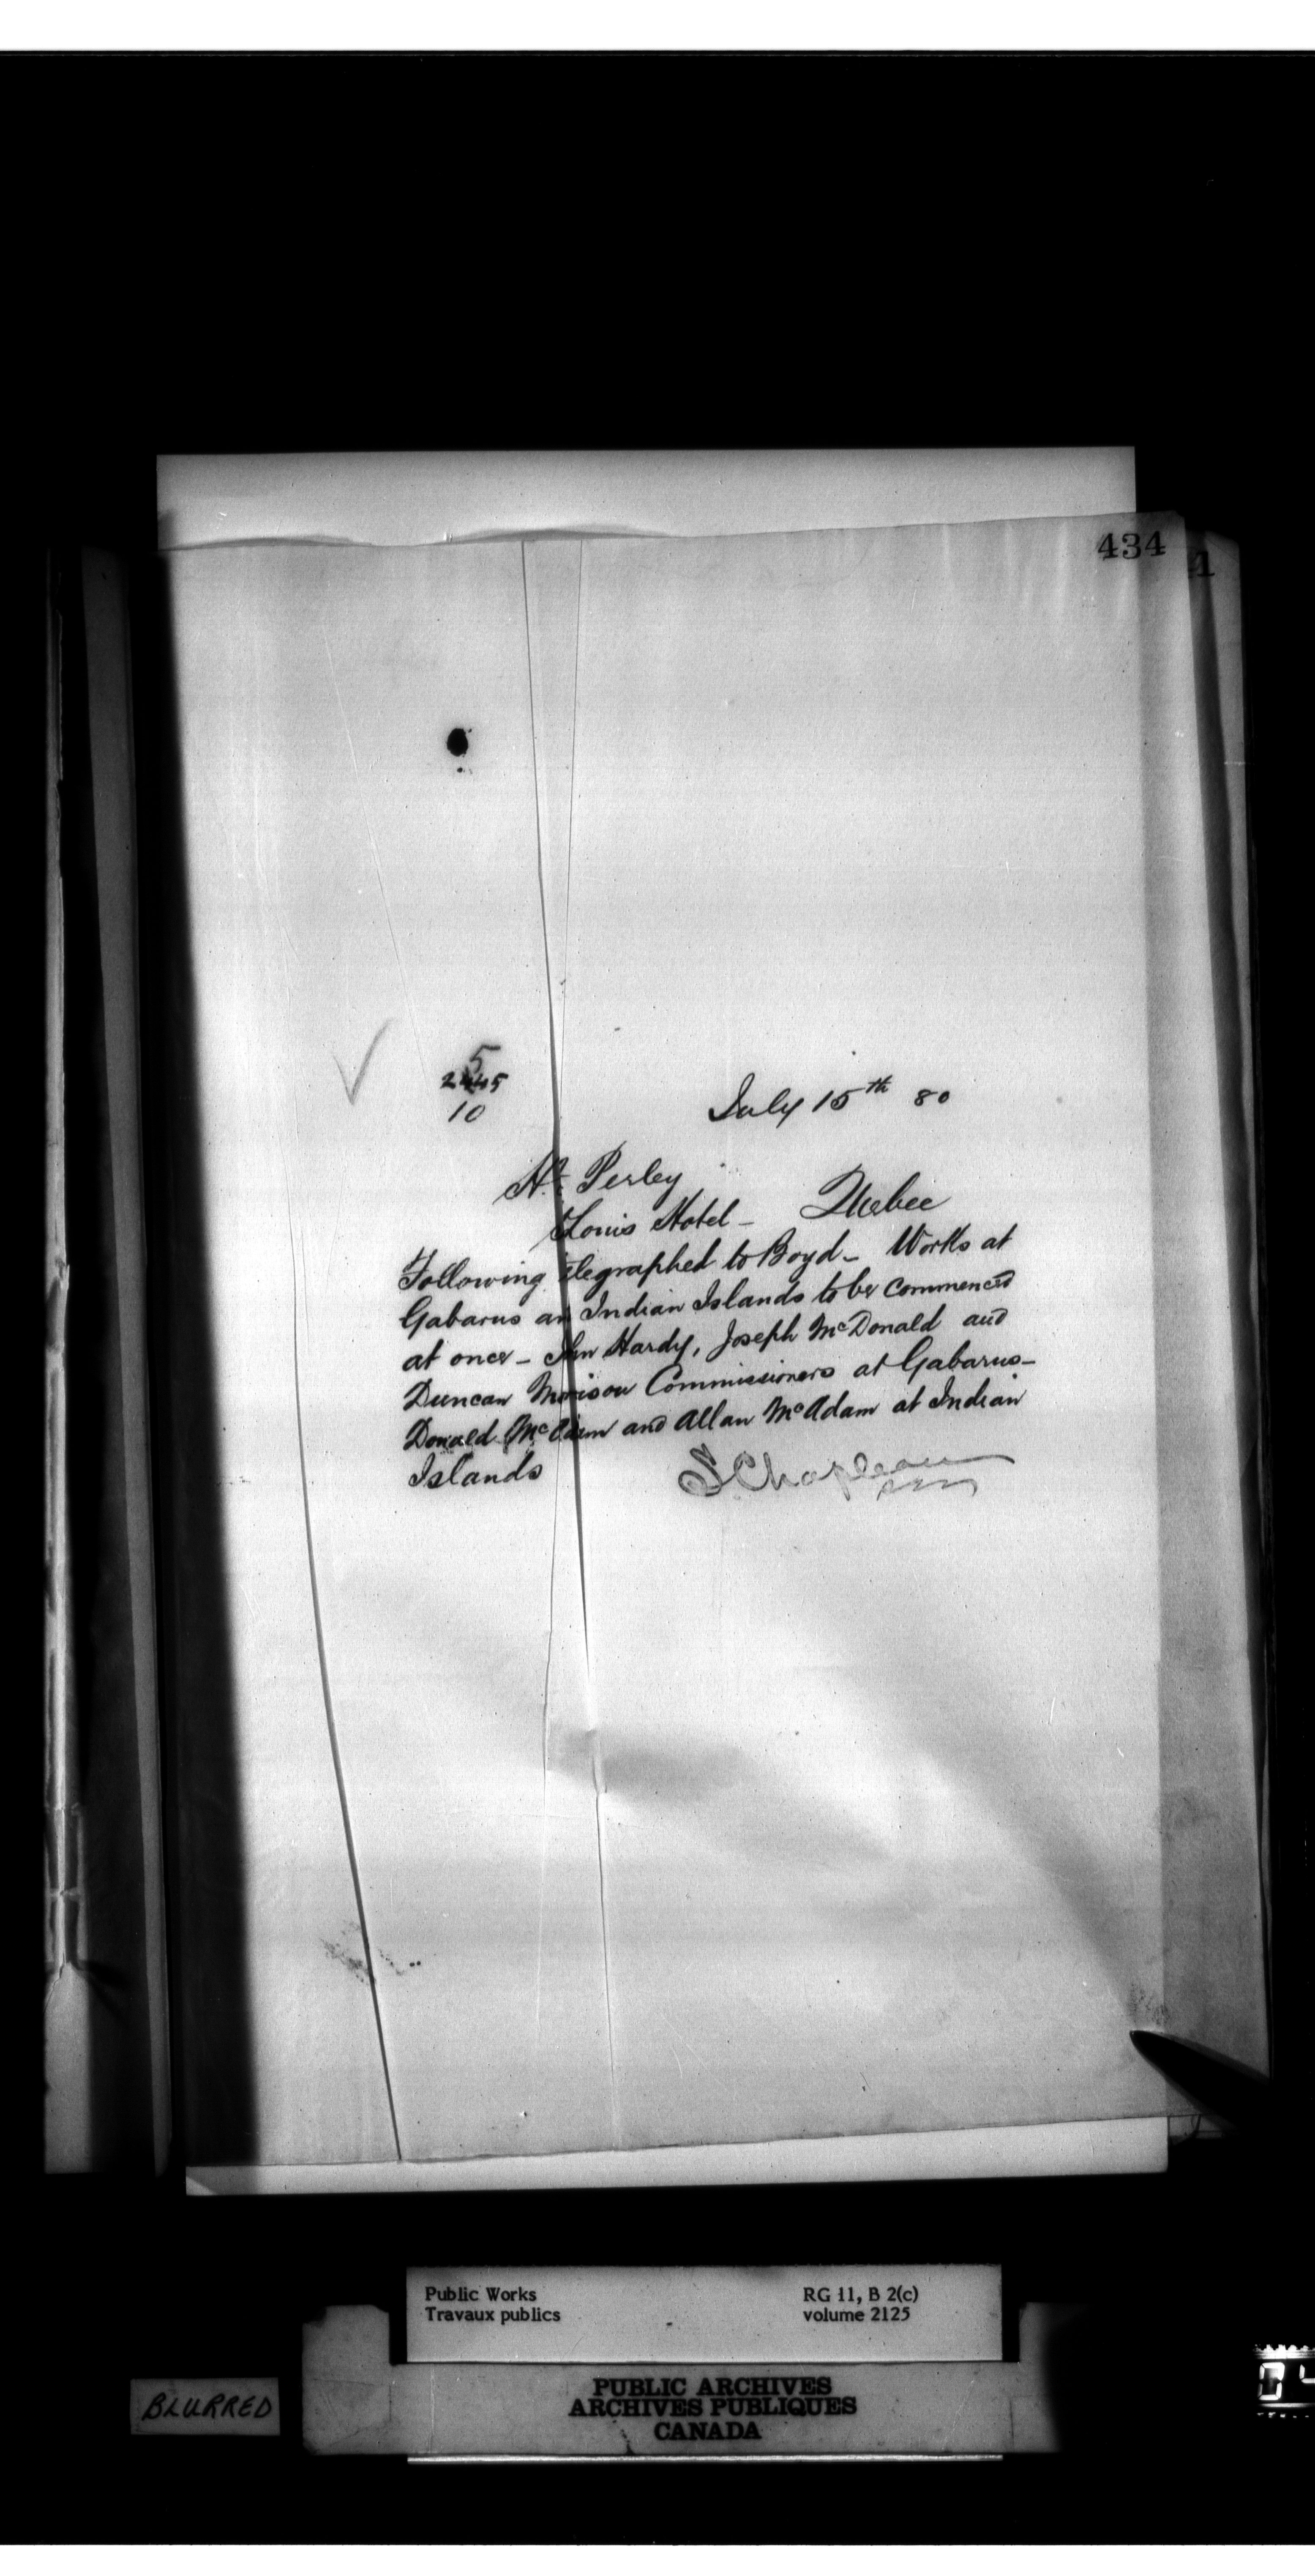 434
1
5
2445
10
July 15th 80
H. Perley
Louis Hotel - Quebec
Following telegraphed to Boyd - Works at
Gabarus an Indian Islands to be commenced
at once - Hardy, Joseph McDonald and
Duncan Morison Commissioners at Gabarus-
Donald McAdam and Allan McAdam at Indian
Islands
S Chapleau
Public Works RG 11, B 2(c)
Travaux publics volume 2125
BLURRED
PUBLIC ARCHIVES
ARCHIVES PUBLIQUES
CANADA